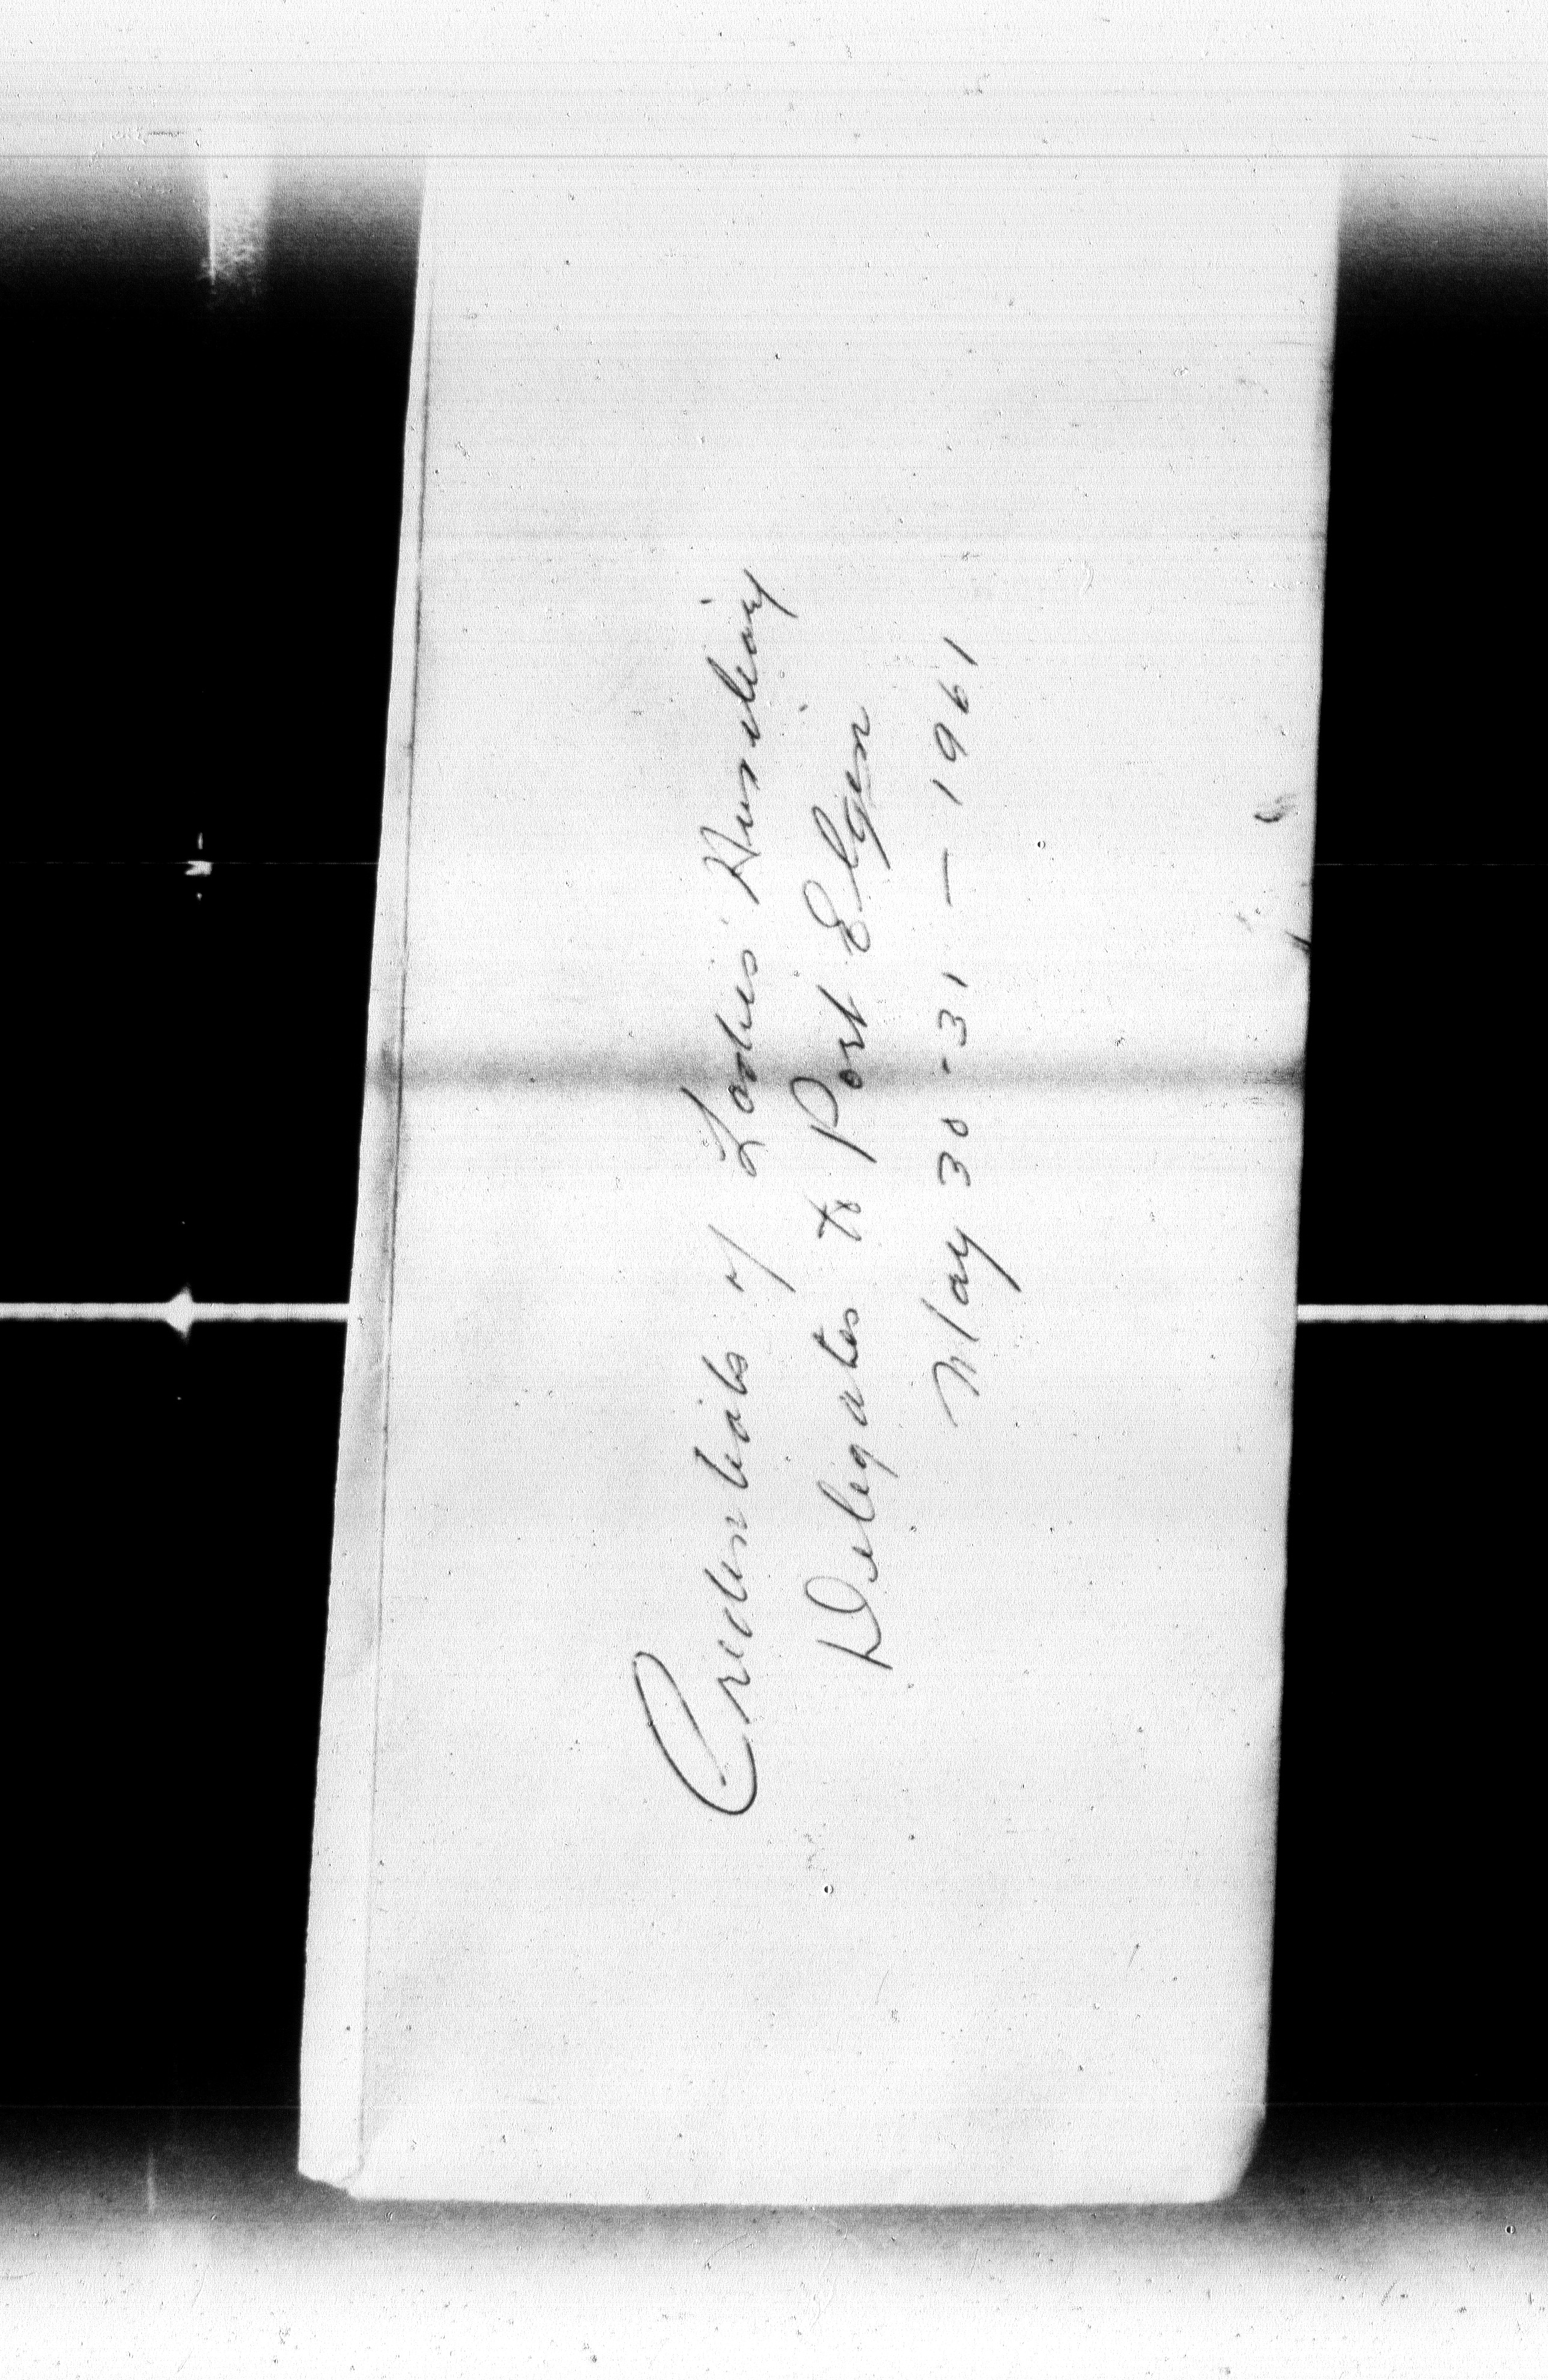 Credentials of Ladies' Auxiliary
Delegates to Port Elgin
May 30-31 — 1961